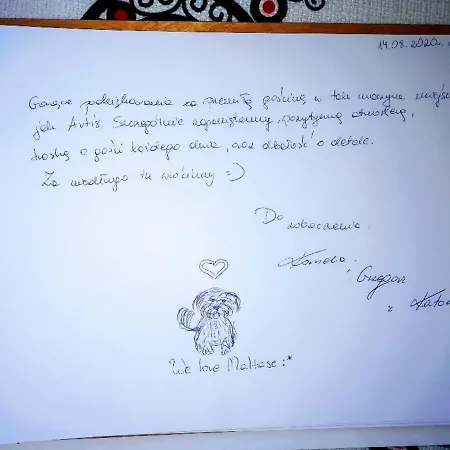 14.08.2020r.
Gorące podziękowania za przemiłą gościnę w tak uroczym miejscu
jak Artis. Szczególnie zapamiętamy pozytywną atmosferę,
troskę o gości każdego dnia, oraz dbałość o detale.
Za niedługo tu wrócimy =)
Do
zobaczenia.
Kamela,
Grzegorz
z
We love Maltese :*